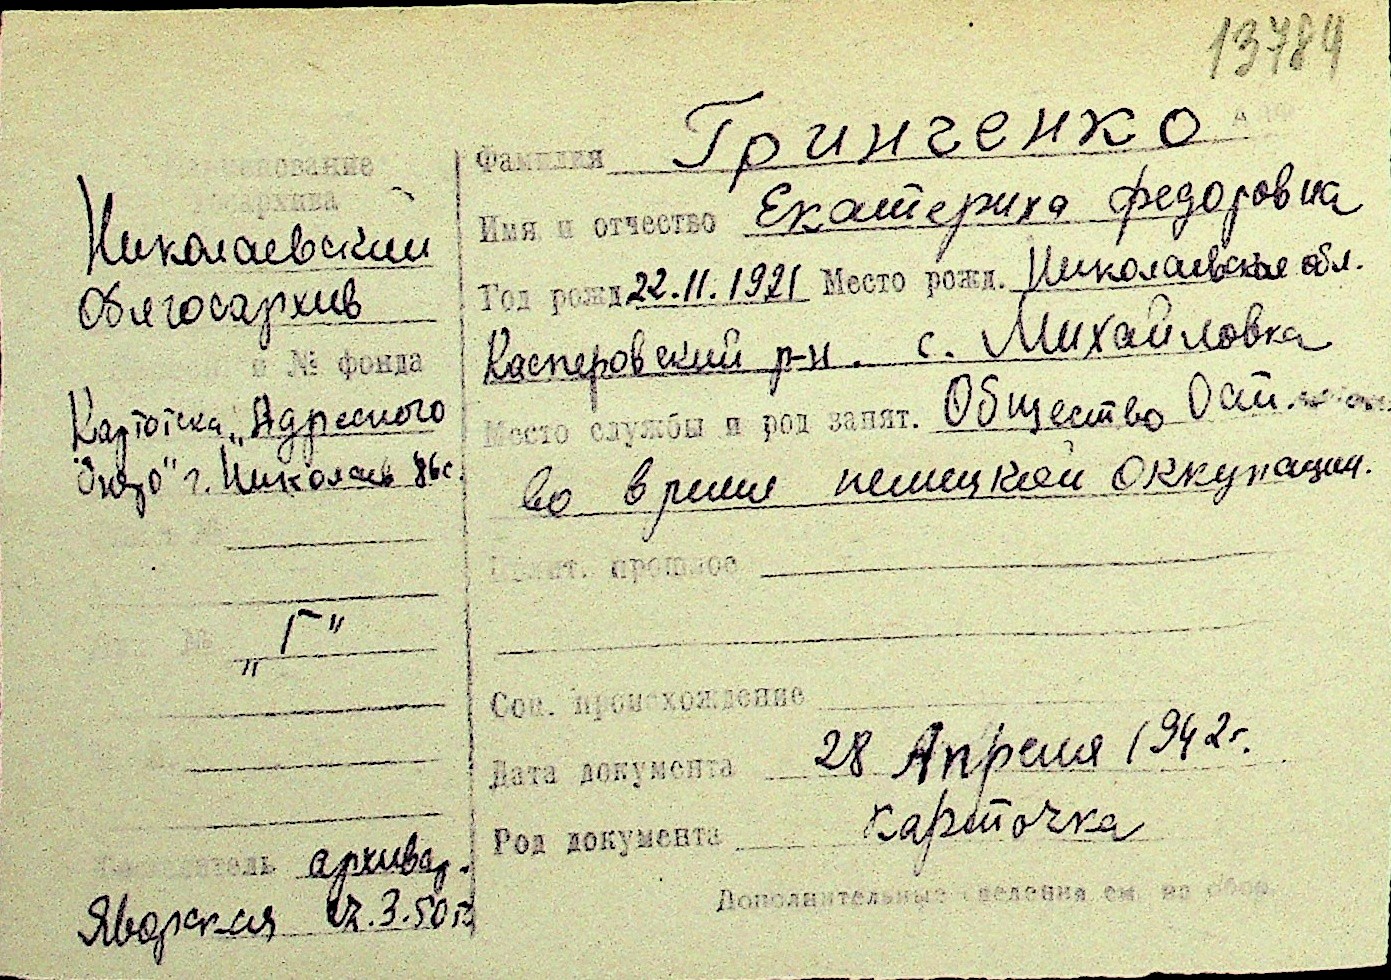 13784
Фамилия Гринченко
Имя и отчество Екатерина Федоровна
Год рожд. 22.11.1921 Место рожд. Николаевская обл.
Касперовский р-н. с. Михайловка
Место службы и род занят. Общество Ост.
во время немецкой оккупации.
Полит. прошлое
Соц. происхождение
Дата документа 28 Апреля 1942 г.
Род документа карточка
Дополнительные сведения см. на обор.
Наименование
госархива
Николаевский
Облгосархив
и № фонда
Картотека „Адресного
бюро" г. Николаев
№
№ „Г"
архивар.
Яворская 12.3.50 г.